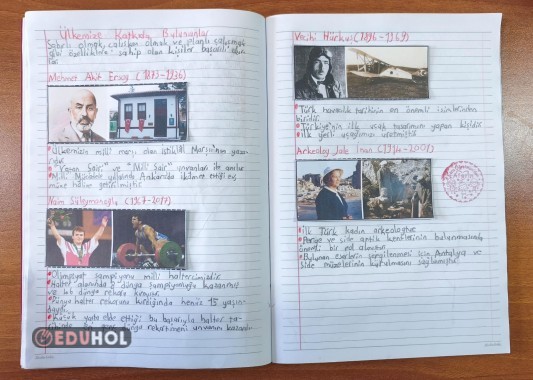 Ülkemize Katkıda Bulunanlar
Sabırlı olmak, çalışkan olmak ve planlı çalışmak
gibi özelliklere sahip olan kişiler başarılı olur-
lar.
Mehmet Akif Ersoy (1873-1936)
Ülkemizin milli marşı olan İstiklâl Marşı'nın yaza-
rıdır.
"Vatan Şairi" ve "Milli Şair" unvanları ile anılır.
Milli Mücadele yıllarında Ankara'da ikamet ettiği ev,
müze haline getirilmiştir.
Naim Süleymanoğlu (1967-2017)
Olimpiyat şampiyonu milli haltercimizdir.
Halter alanında dünya şampiyonluğu kazanmış
ve 46 dünya rekoru kırmıştır.
Dünya halter rekorunu kırdığında henüz 15 yaşın-
daydı.
Küçük yaşta elde ettiği bu başarıyla halter ta-
rihinde en genç dünya rekortmeni unvanını kazandı.
EDUHOL
Vecihi Hürkuş (1896-1969)
Türk havacılık tarihinin en önemli isimlerinden
biridir.
Türkiye'nin ilk uçak tasarımını yapan kişidir.
İlk yerli uçağımızı üretmiştir.
Arkeolog Jale İnan (1914-2001)
İlk Türk kadın arkeoloğtur
Perge ve Side antik kentlerinin bulunmasında
önemli bir rol almıştır.
Bulunan eserlerin sergilenmesi için Antalya ve
Side müzelerinin kurulmasını sağlamıştır.